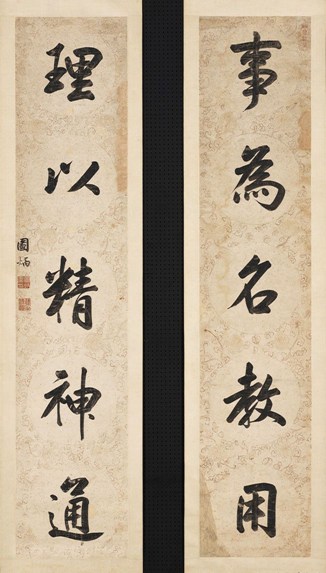 事為名教用
理以精神通
圖炳